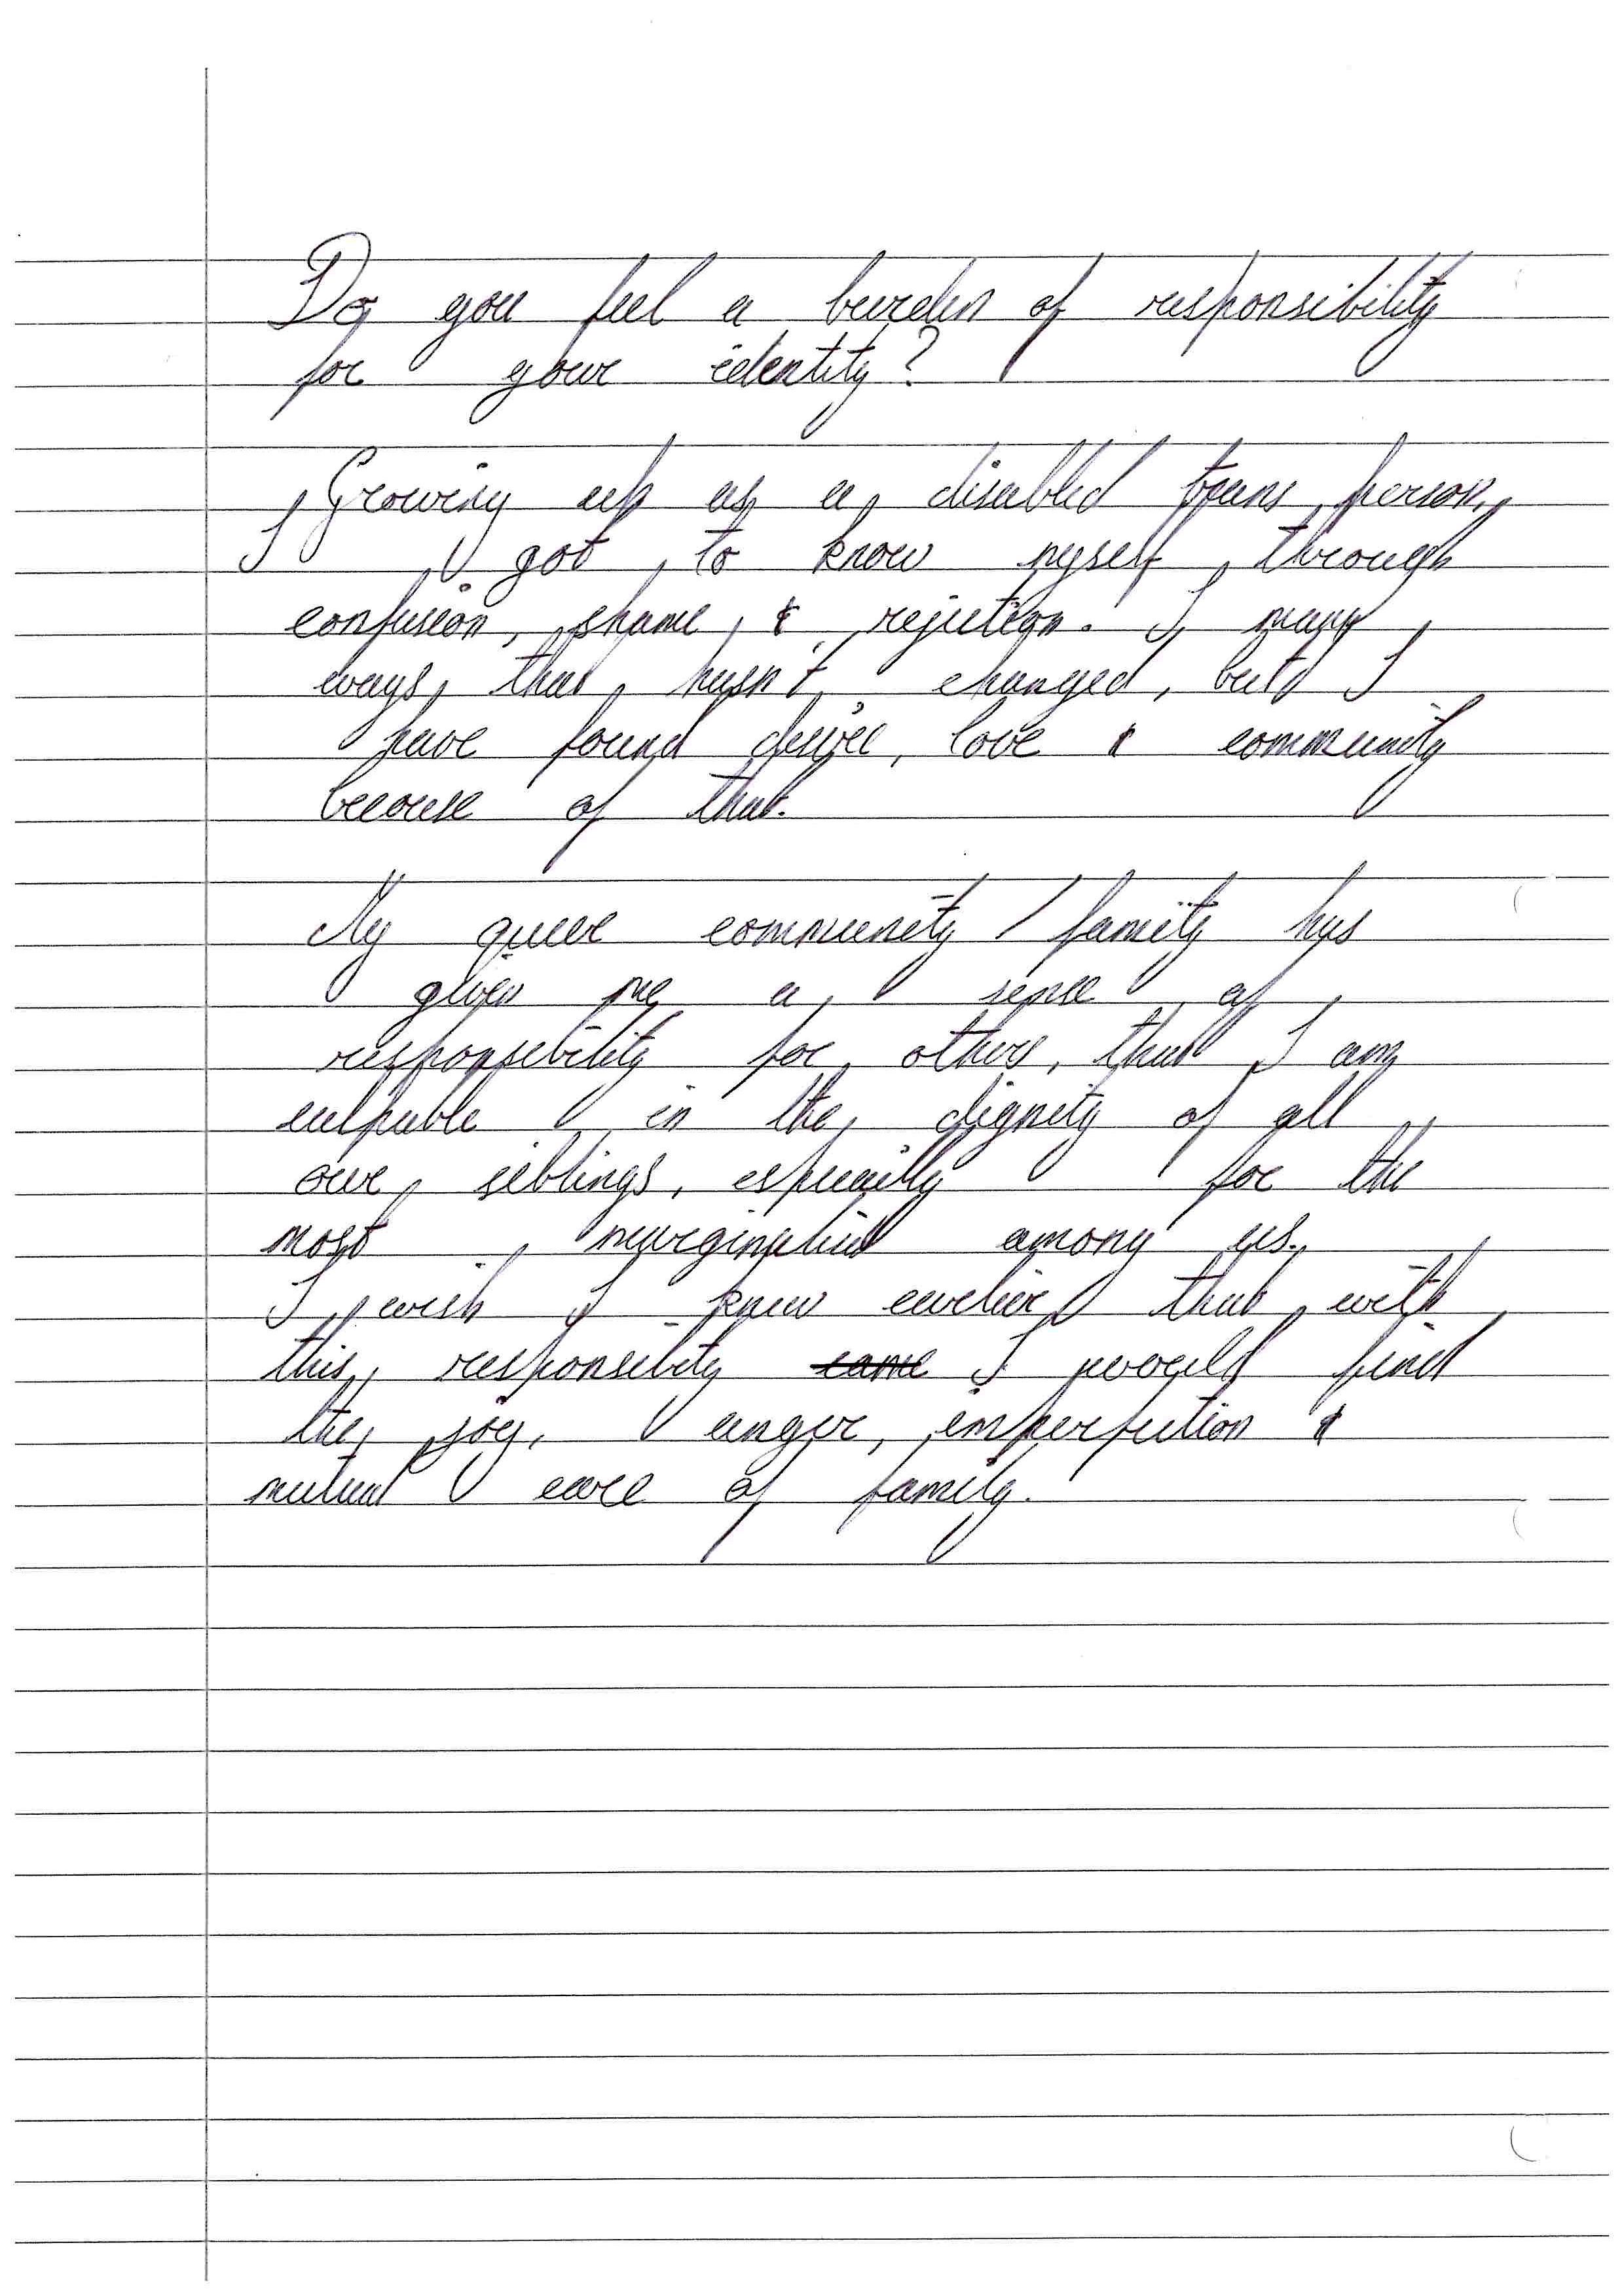 Do you feel a burden of responsibility
for your identity?
Growing up as a disabled trans person,
I got to know myself through
confusion, shame, & rejection. I many
ways, that hasn't changed, but I
have found desire, love & community
because of that.
My queer community / family has
given me a sense of
responsibility for others, that I am
culpable in the dignity of all
our siblings, especially for the
most marginalised among us.
I wish I knew earlier that with
this responsibility came I would find
the joy, anger, imperfection &
mutual care of family.